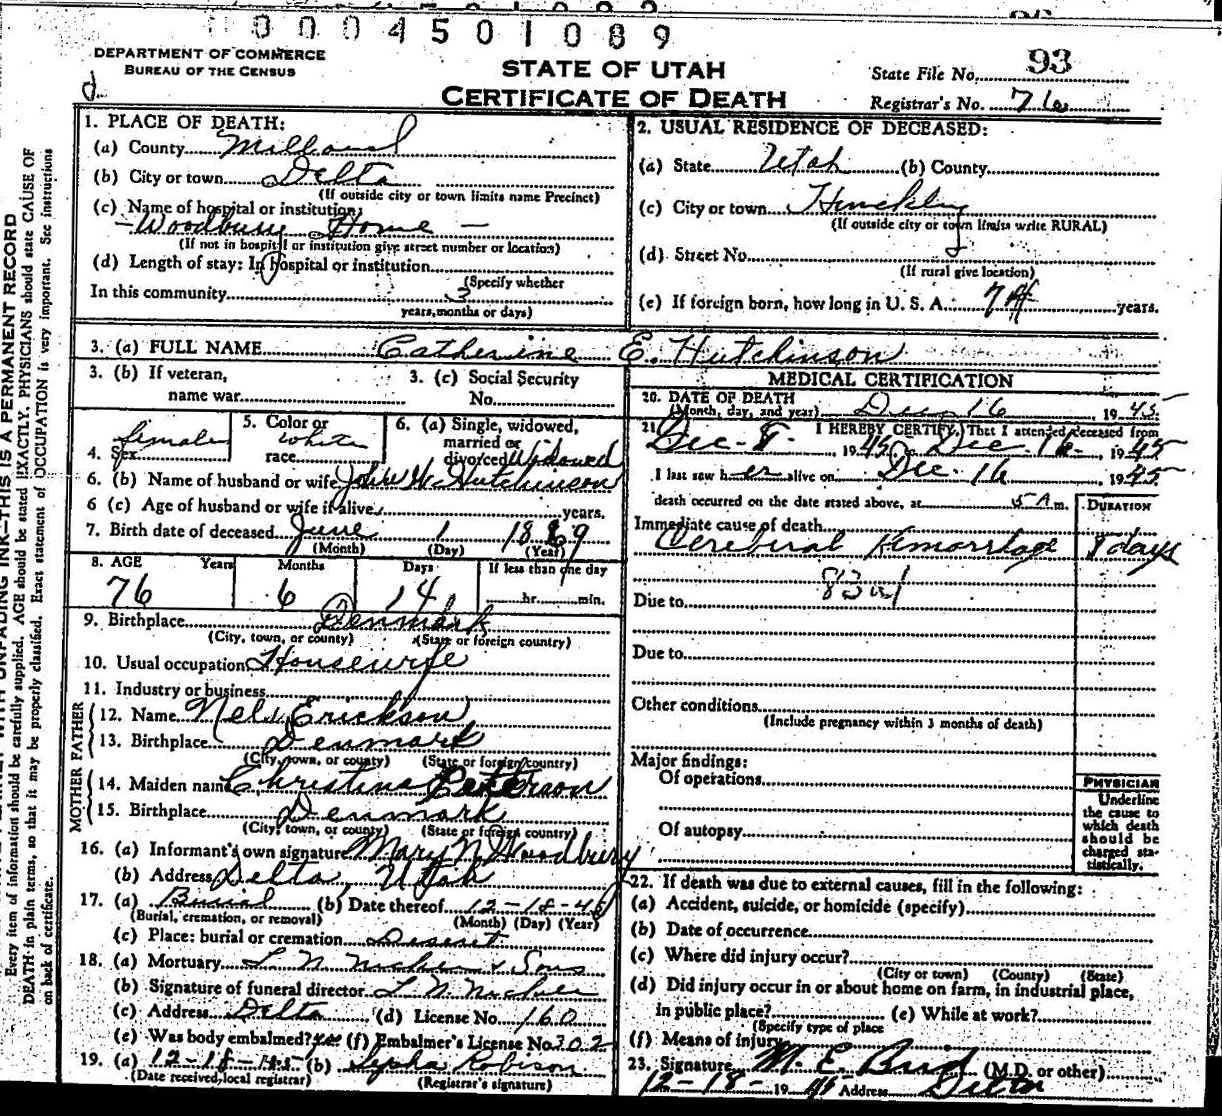 0004501089
DEPARTMENT OF COMMERCE
BUREAU OF THE CENSUS
STATE OF UTAH
CERTIFICATE OF DEATH
State File No. 93
Registrar's No. 76
1. PLACE OF DEATH:
(a) County Millard
(b) City or town Delta
(If outside city or town limits name Precinct)
(c) Name of hospital or institution:
- Woodbury Home -
(If not in hospital or institution give street number or location)
(d) Length of stay: In hospital or institution
(Specify whether
In this community 3
years, months or days)
2. USUAL RESIDENCE OF DECEASED:
(a) State Utah (b) County
(c) City or town Hinckley
(If outside city or town limits write RURAL)
(d) Street No.
(If rural give location)
(e) If foreign born, how long in U. S. A. 74 years.
3. (a) FULL NAME Catherine E. Hutchinson
3. (b) If veteran,
name war
3. (c) Social Security
No.
4. Sex female
5. Color or
race white
6. (a) Single, widowed,
married or
divorced Widowed
6. (b) Name of husband or wife John W Hutchinson
6 (c) Age of husband or wife if alive years.
7. Birth date of deceased June 1 1869
(Month) (Day) (Year)
8. AGE Years Months Days If less than one day
76 6 14 hr. min.
9. Birthplace Denmark
(City, town, or county) (State or foreign country)
10. Usual occupation Housewife
11. Industry or business
FATHER
12. Name Nels Erickson
13. Birthplace Denmark
(City, town, or county) (State or foreign country)
MOTHER
14. Maiden name Christina Peterson
15. Birthplace Denmark
(City, town, or county) (State or foreign country)
16. (a) Informant's own signature Mary N Woodbury
(b) Address Delta, Utah
17. (a) Burial (b) Date thereof 12-18-45
(Burial, cremation, or removal) (Month) (Day) (Year)
(c) Place: burial or cremation Deseret
18. (a) Mortuary L N & Sons
(b) Signature of funeral director L N
(c) Address Delta (d) License No. 160
(e) Was body embalmed? yes (f) Embalmer's License No. 302
19. (a) 12-18-45 (b) Robison
(Date received, local registrar) (Registrar's signature)
MEDICAL CERTIFICATION
20. DATE OF DEATH
(Month, day, and year) Dec 16 1945
21. I HEREBY CERTIFY, That I attended deceased from
Dec. 8 1945, to Dec. 16 1945
I last saw her alive on Dec. 16 1945
death occurred on the date stated above, at 5 A m.
DURATION
Immediate cause of death
Cerebral Hemorrhage 8 days
Due to
Due to
Other conditions
(Include pregnancy within 3 months of death)
Major findings:
Of operations
Of autopsy
PHYSICIAN
Underline
the cause to
which death
should be
charged sta-
tistically.
22. If death was due to external causes, fill in the following:
(a) Accident, suicide, or homicide (specify)
(b) Date of occurrence
(c) Where did injury occur?
(City or town) (County) (State)
(d) Did injury occur in or about home on farm, in industrial place,
in public place? (e) While at work?
(Specify type of place
(f) Means of injury
23. Signature M. E. Bird (M.D. or other)
12-18-1945 Address Delta
THIS IS A PERMANENT RECORD
Every item of information should be carefully supplied. AGE should be stated EXACTLY. PHYSICIANS should state CAUSE OF
DEATH in plain terms, so that it may be properly classified. Exact statement of OCCUPATION is very important. See instructions
on back of certificate.